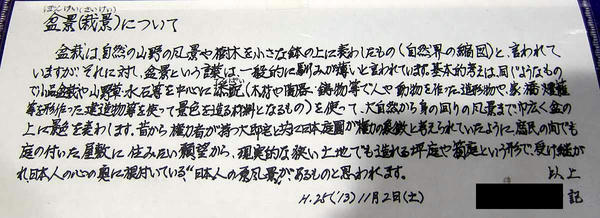 ぼんけい(さいけい)
盆景(栽景)について
盆栽は、自然の山野の風景や樹木を小さな鉢の上に表わしたもの(自然界の縮図)と、言われて
いますが、それに対し、盆景という言葉は、一般的に馴みが薄いと言われています。基本的考えは、同じようなもの
で小品盆栽や山野草・水石等を中心に添配(木材や陶器・鋳物等で人や動物を作った造形物や、家・橋・
等を形作った建造物等を使って景色を造る材料となるもの)を使って、大自然から身の回りの風景まで巾広く盆の
上に景色を表わします。昔から権力者が持つ大邸宅と共に日本庭園が権力の象徴と考えられていたように、庶民の間でも
庭の付いた屋敷に住みたい願望から、現実的な狭い土地でも造れる坪庭や箱庭という形で、受け継が
れ、日本人の心の奥に根付いている"日本人の原風景"が、あるものと思われます。 以上
H.25('13)11月2日(土) 記